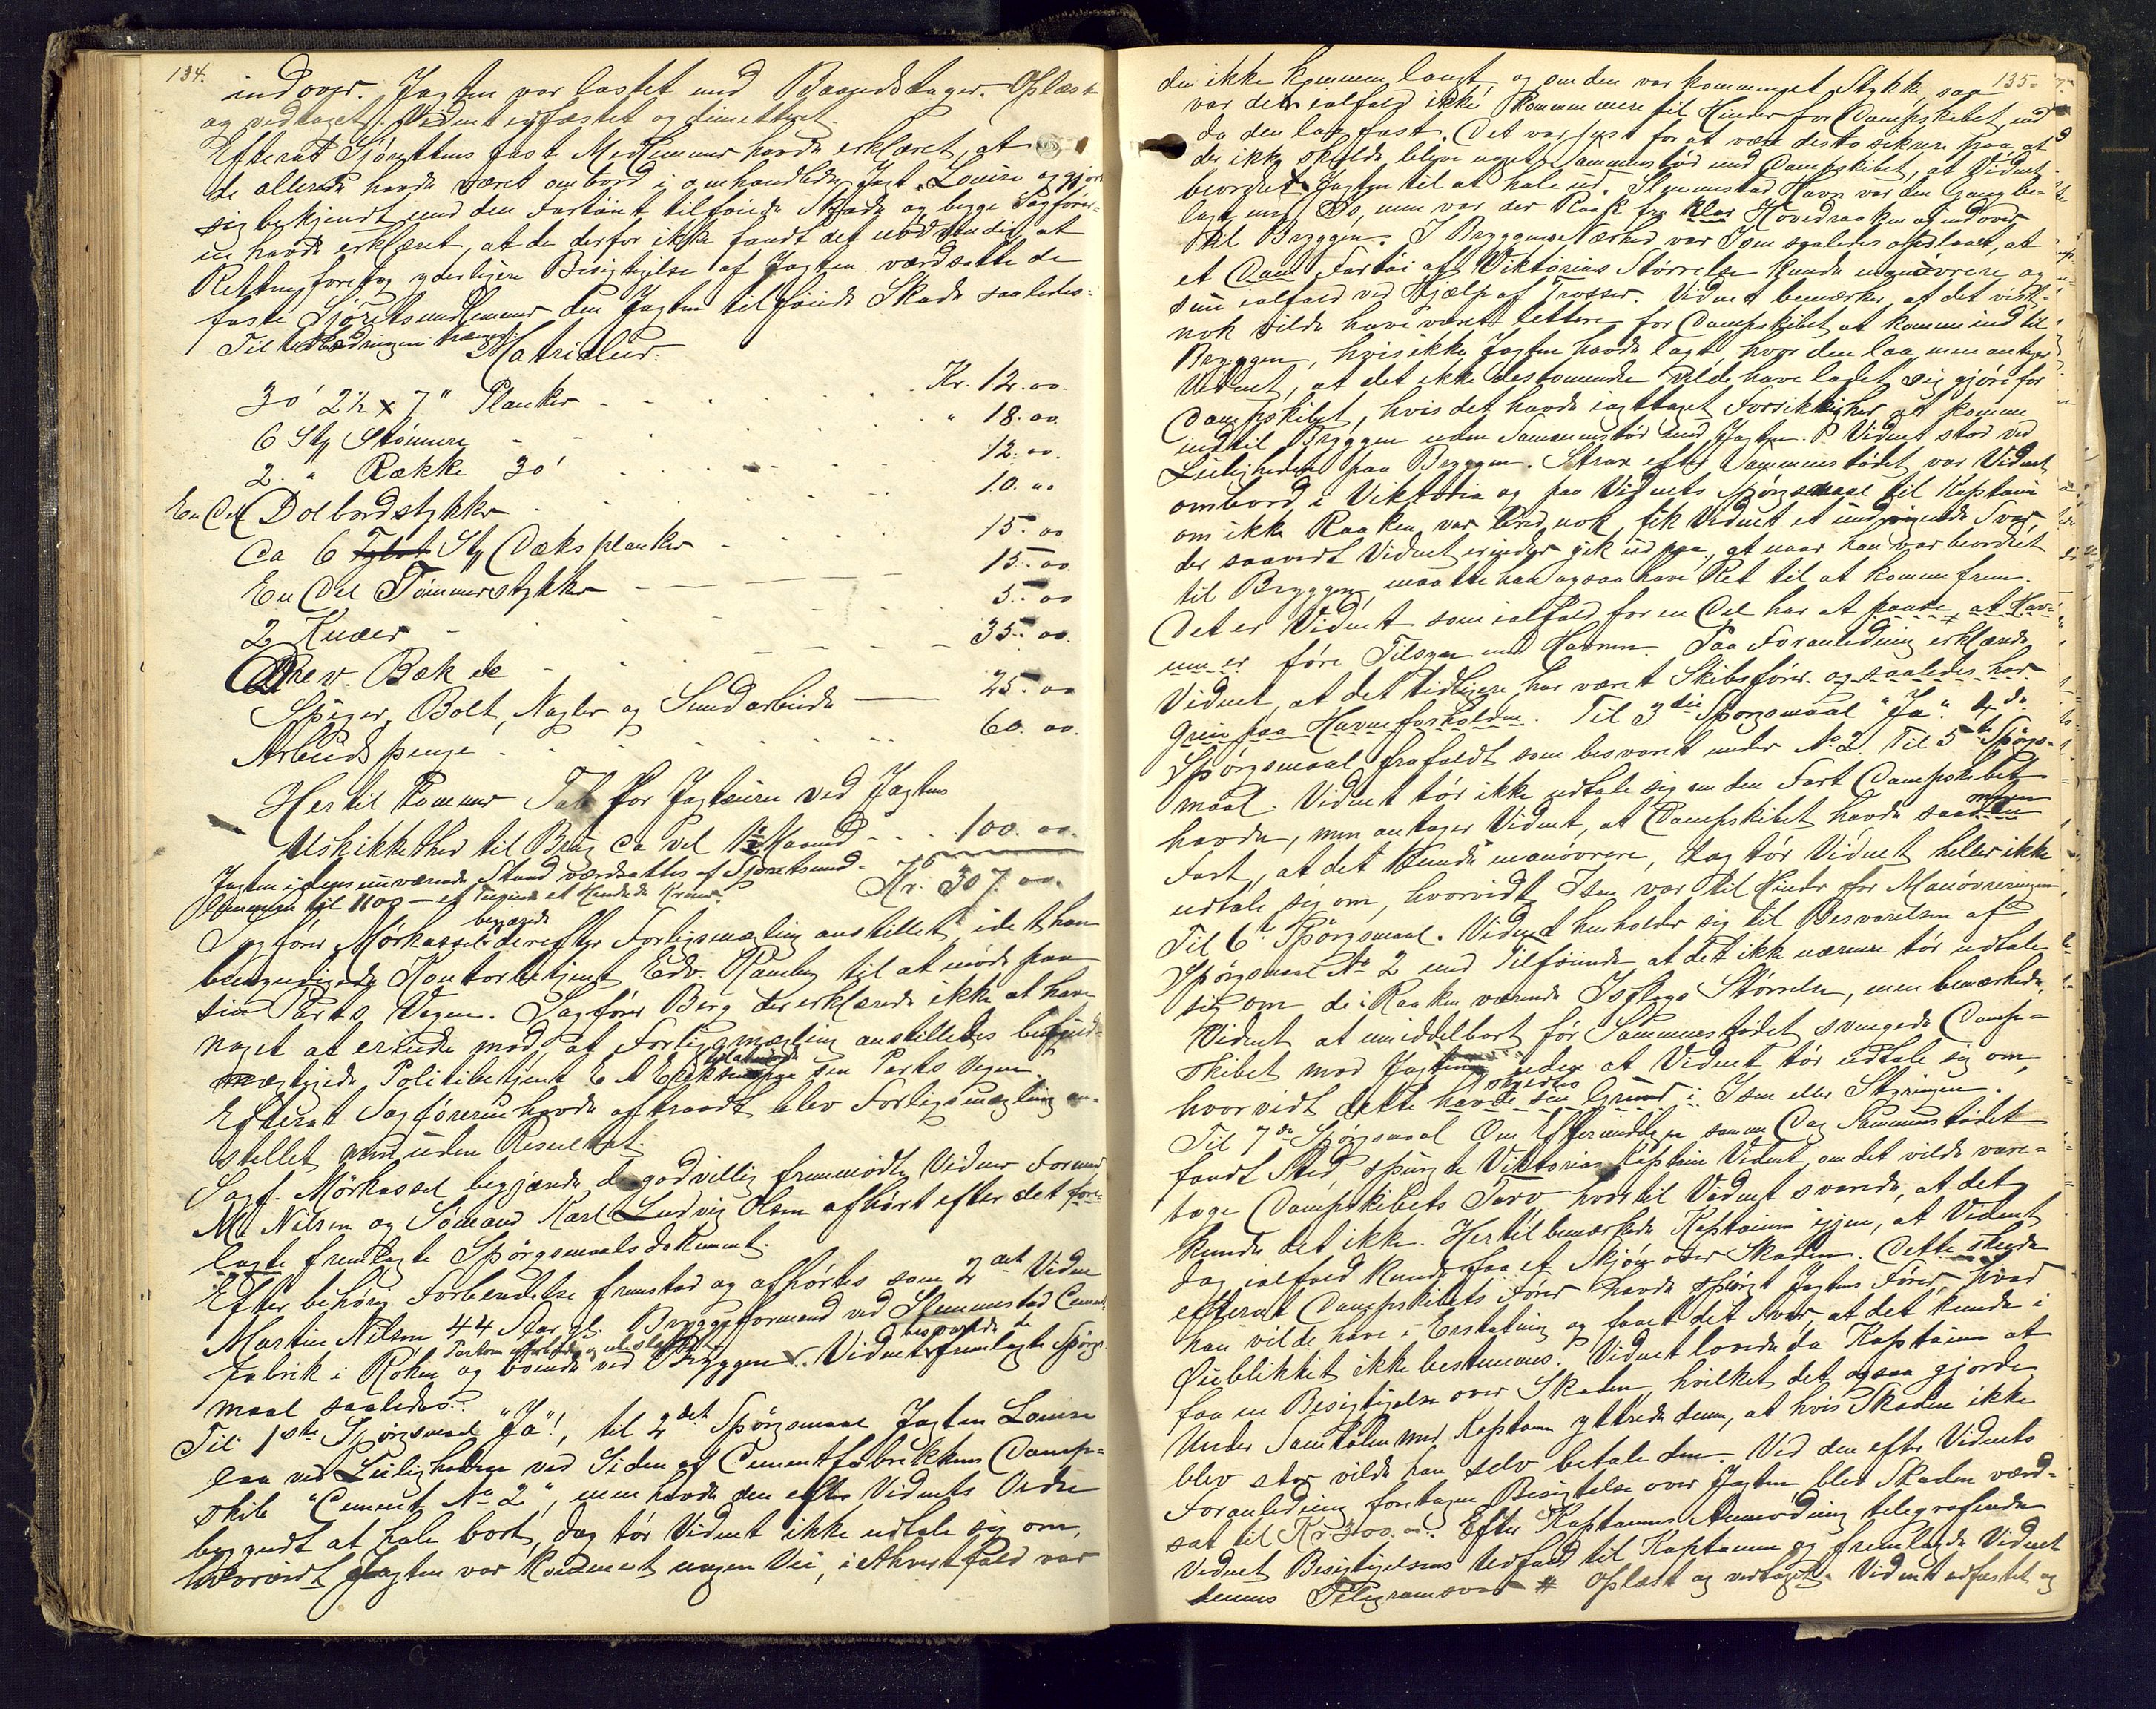 134.
indover. Jagten var lastet med Baandstager. Oplæst
og vedtaget. Vidnet edfæstet og dimitteret.
Efterat Sjørettens faste Medlemmer havde erklæret, at
de allerede havde været ombord i omhandlede Jagt "Louise" og gjort
sig bekjendt med den Fartøiet tilføiede Skade og begge Sagfører-
ne havde erklæret, at de derfor ikke fandt det nødvendig, at
Retten foretog yderligere Besigtigelse af Jagten værdsatte de
faste Sjøretsmedlemmer den Jagten tilføiede Skade saaledes:
Til Udbedringen trænges:
Matrialier.
30' 2½ x 7" Planker - - Kr. 12.00.
6 Stk Støtter - - " 18.00.
2. " Række 30' 12.00.
En Del Dolbordstykker - 10.00
Ca 6 Stk Dæksplanker - 15.00
En Del Tømmerstykker - 15.00.
2 Knæer - 5.00
Drev. Bek etc - 35.00.
Spiger, Bolt, Nagler og Smedarbeide - 25.00
Arbeidspenge - 60.00.
Hertil kommer Tab for Jagteieren ved Jagtens
Uskikkethed til Brug ca vel 1½ Maaned - - - 100.00.
Kr. 307.00.
Jagten i dens nuværende Stand værdsattes af Sjøretsmed-
lemmerne til 1100 - et Tusinde et Hundrede Kroner.
Sagfører Mørkassel begjærede derefter Forligsmægling anstillet idet han
bemyndigede Kontorbetjent Edv. Ramberg til at møde paa
sin Parts Vegne. Sagfører Berg der erklærede ikke at have
noget at erindre mod, at Forligsmægling anstilledes befuld-
mægtigede Politibetjent E A Eriksen sin Parts Vegne.
Efterat Sagførerne havde aftraadt blev Forligsmægling an-
stillet men uden Resultat.
Sagf. Mørkassel begjærede de godvillig fremmødte Vidner Formand
M. Nilsen og Sømand Karl Ludvig Olsen afhørt efter det fore-
lagte fremlagte Spørgsmaalsdokument.
Efter behørig Forberedelse fremstod og afhørtes som 2det Vidne
Martin Nilsen 44 Aar gl. Bryggeformand ved Slemmestad Cement-
fabrik i Røken og boende ved Bryggen. Vidnet besvarede de fremlagte Spørgs-
maal saaledes:
Til 1ste Spørgsmaal "Ja"!, til 2det Spørgsmaal Jagten Louise
laa ved Leiligheden ved Siden af Cementfabrikkens Damp-
skib "Cement No 2", men havde den efter Vidnets Ordre
begyndt at hale bort, dog tør Vidnet ikke udtale sig om,
hvorvidt Jagten var kommet nogen Vei, i ethvert fald var
135.
den ikke kommen langt og om den var kommen et Stykke, saa
var den ialfald ikke kommen mere til Hinder for Dampskibet, end
da den laa fast. Det var just for at være desto sikrere paa at
der ikke skulde blive noget Sammenstød med Dampskibet, at Vidnet
beordret Jagten til at hale ud. Slemmestad Havn var den Gang be-
lagt med Is, men var der Raak fra klar Hovedraaken og indover
til Bryggen. I Bryggens Nærhed var Isen saaledes opslaaet, at
et Damp Fartøi af Viktorias Størrelse kunde manøvrere og
snu ialfald ved Hjælp af Trosser. Vidnet bemærker, at det vist-
nok vilde have været lettere for Dampskibet at komme ind til
Bryggen, hvis ikke Jagten havde lagt, hvor den laa, men antager
Vidnet, at det ikke destomindre vilde have ladet sig gjøre for
Dampskibet, hvis det havde iagttaget Forsiktighed at komme
indtil Bryggen uden Sammenstød med Jagten. Vidnet stod ved
Leiligheden paa Bryggen. Strax efter Sammenstødet var Vidnet
ombord i Viktoria og paa Vidnets Spørgsmaal til Kaptain
om ikke Raaken var bred nok, fik Vidnet et undvigende Svar,
der saavidt Vidnet erindrer gik ud paa, at naar han var beordret
til Bryggen, maatte han ogsaa have Ret til at komme frem.
Det er Vidnet som ialfald for en Del har at passe, at Hav-
nen er føre Tilsyn med Havnen. Paa Foranledning erklærede
Vidnet, at det tidligere har været Skibsfører og saaledes har
Grein paa Havneforholdene. Til 3die Spørgsmaal "Ja". 4de
Spørgsmaal frafaldt som besvaret under No 2. Til 5te Spørgs-
maal. Vidnet tør ikke udtale sig om den Fart Dampskibet
havde, men antager Vidnet, at Dampskibet havde saa megen
Fart, at det kunde manøvrere, dog tør Vidnet heller ikke
udtale sig om, hvorvidt Isen var til Hinder for Manøvreringen
Til 6te Spørgsmaal. Vidnet henholder sig til Besvarelsen af
Spørgsmaal No 2 med Tilføiende at det ikke nærmere tør udtale
sig om de i Raaken værende Isflags Størrelse, men bemærkede
Vidnet at umiddelbart før Sammenstødet svingede Damp-
skibet mod Jagten uden at Vidnet tør udtale sig om,
hvorvidt dette havde sin Grund i Isen eller Styringen.
Til 7de Spørgsmaal Om Eftermiddagen samme Dag Sammenstødet
fandt Sted, spurgte Viktorias Kaptain Vidnet, om det vilde vare-
tage Dampskibets Tarv, hvortil Vidnet svarede, at det
kunde det ikke. Hertil bemærkede Kaptainen igjen, at Vidnet
dog ialfald kunde faa et Skjøn over Skaden. Dette skede
efterat Dampskibets Fører havde spurgt Jagtens Fører, hvad
han vilde have i Erstatning og faaet det Svar, at det kunde i
Øieblikket ikke bestemmes. Vidnet lovede da Kaptainen at
faa en Besigtigelse over Skaden, hvilket det ogsaa gjorde.
Under Samtalen med Kaptainen yttrede denne, at hvis Skaden ikke
blev stor vilde han selv betale den. Ved den efter Vidnets
Foranledning foretagne Besigtelse over Jagten, blev Skaden værd-
sat til Kr. 300.00. Efter Kaptainens Anmodning telegraferede
Vidnet Besigtigelsens Udfald til Kaptainen og fremlagde Vidnet
dennes Telegramsvar # Oplæst og vedtaget. Vidnet edfæstet og